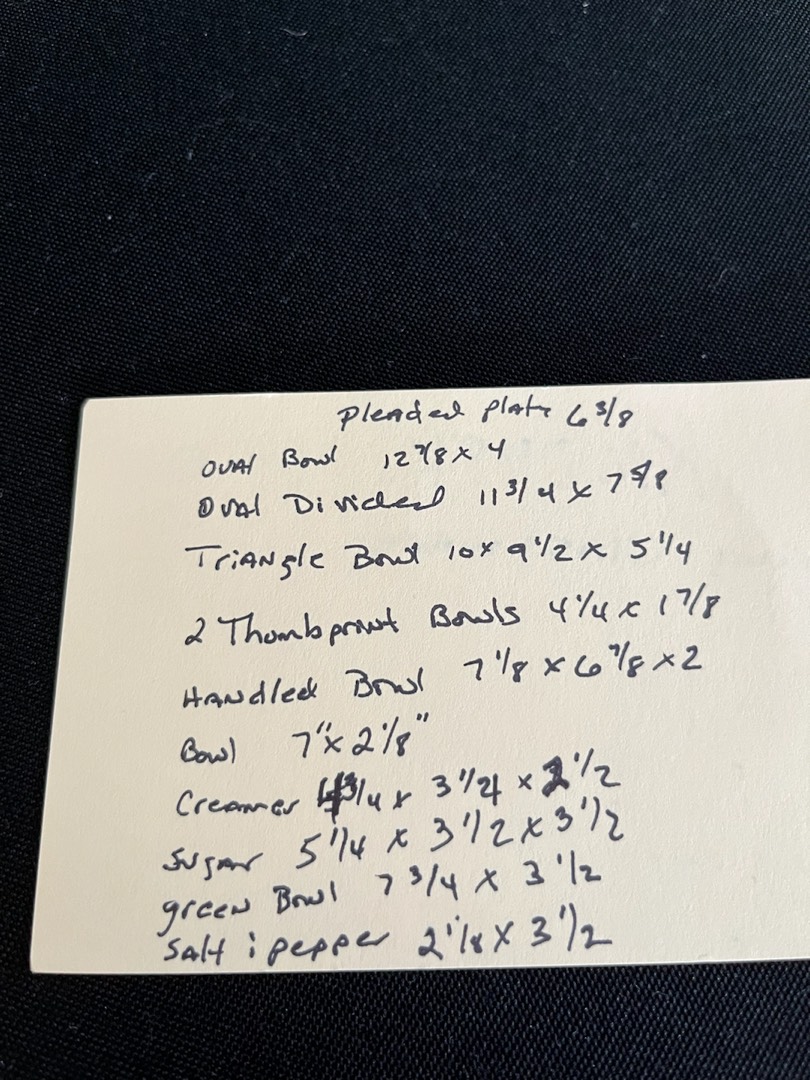 Pleaded plate 6 3/8
OVAl Bowl 12 7/8 x 4
OVAl Divided 11 3/4 x 7 5/8
TriANgle Bowl 10 x 9 1/2 x 5 1/4
2 Thumbprint Bowls 4 1/4 x 1 7/8
HANdled Bowl 7 1/8 x 6 7/8 x 2
Bowl 7" x 2 1/8"
Creamer 3/4 x 3 1/4 x 1/2
Sugar 5 1/4 x 3 1/2 x 3 1/2
green Bowl 7 3/4 x 3 1/2
SAlt & pepper 2 1/8 x 3 1/2